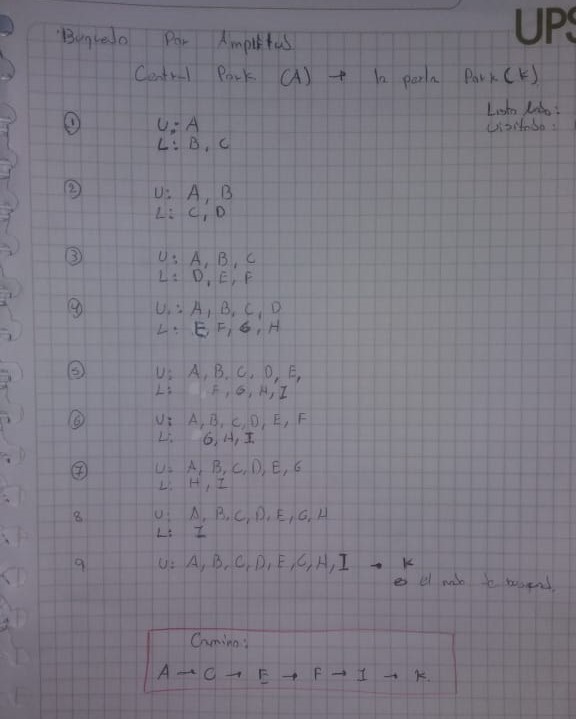 UPS
Busquedo Por Amplitus
Central Park (A) → la perla Park (K)
Lista
Visitado:
① V: A
L: B, C
② V: A, B
L: C, D
③ V: A, B, C
L: D, E, F
④ V: A, B, C, D
L: E, F, G, H
⑤ V: A, B, C, D, E,
L: F, G, H, I
⑥ V: A, B, C, D, E, F
L: G, H, I
⑦ V: A, B, C, D, E, G
L: H, I
8 V: A, B, C, D, E, G, H
L: I
9 V: A, B, C, D, E, G, H, I → K
el
Camino:
A → C → E → F → I → K